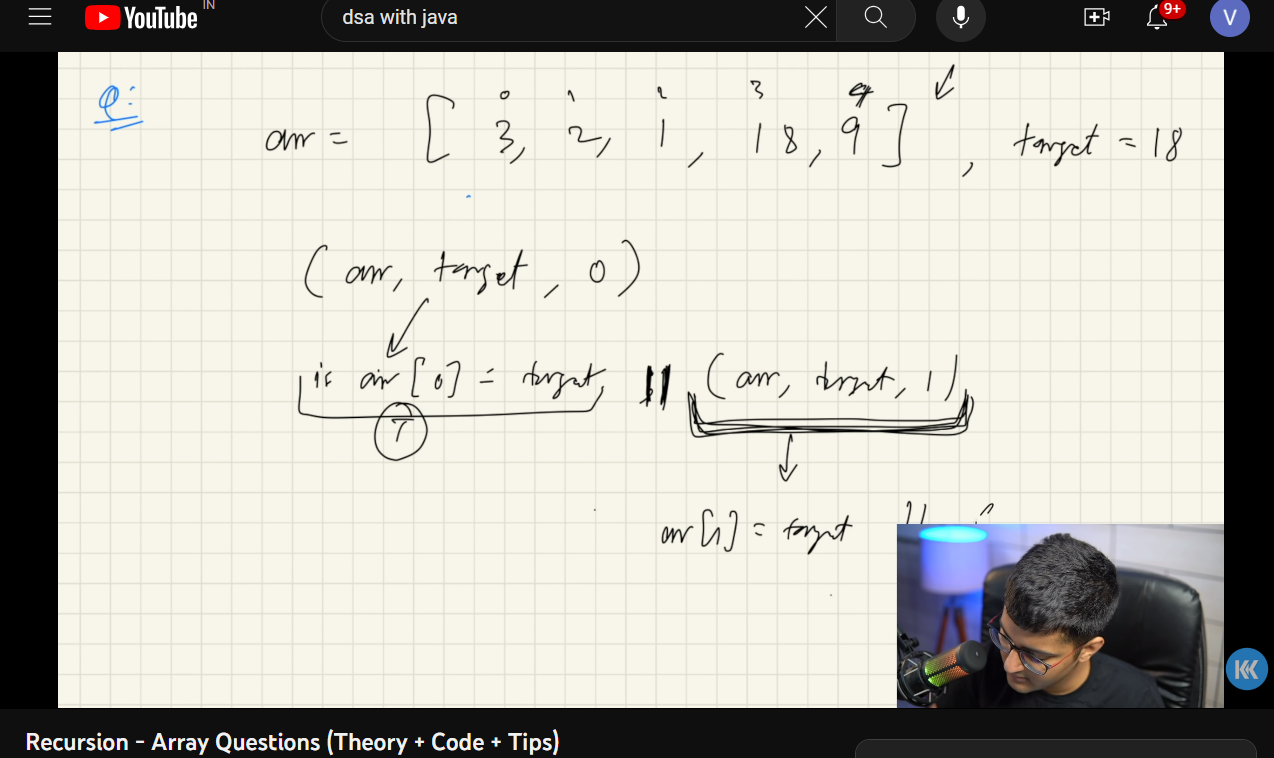 IN
YouTube
dsa with java
9+
V
Q:
0 1 2 3 4
arr = [ 3, 2, 1, 18, 9 ], target = 18
(arr, target, 0)
if arr[0] = target, || (arr, target, 1)
T
arr[1] = target || (
KK
Recursion - Array Questions (Theory + Code + Tips)